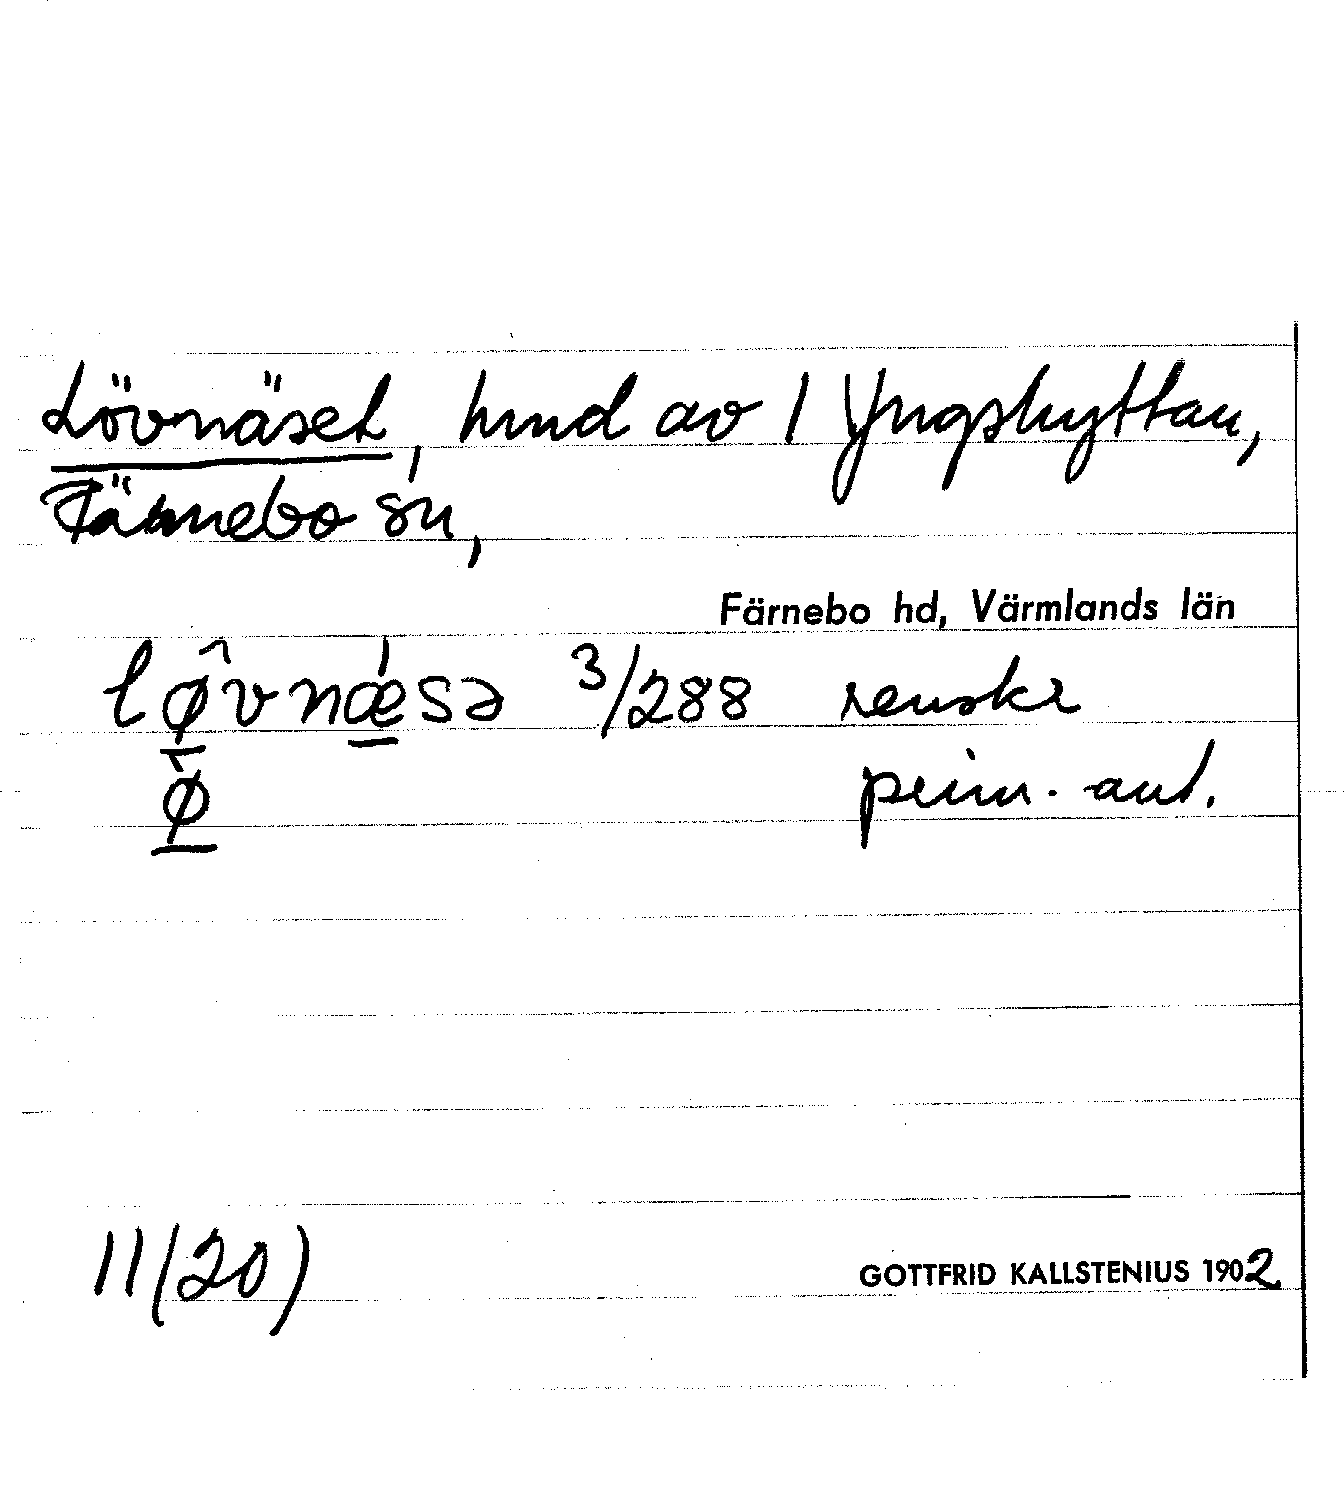 Lövnäset, hmd av 1 Yngshyttan,
Färnebo sn,
Färnebo hd, Värmlands län
lø̂vnǽsə 3/288 renskr
ø̄ prim. ant.
11(20)
GOTTFRID KALLSTENIUS 1902